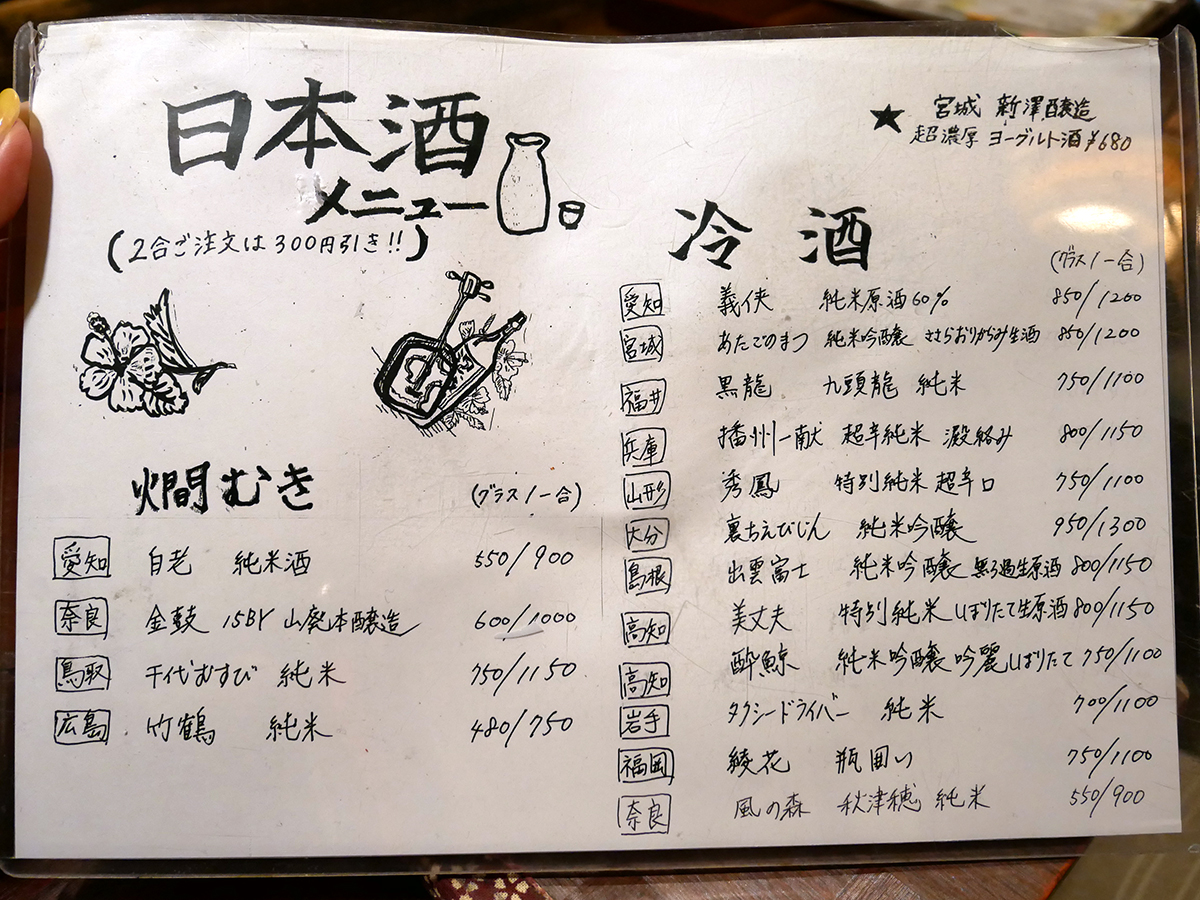 日本酒
メニュー
(2合ご注文は300円引き!!)
燗むき
(グラス/一合)
愛知 白老 純米酒 550/900
奈良 金鼓 15BY 山廃本醸造 600/1000
鳥取 千代むすび 純米 750/1150
広島 竹鶴 純米 480/750
★ 宮城 新澤醸造
超濃厚 ヨーグルト酒 ¥680
冷酒
(グラス/一合)
愛知 義侠 純米原酒60% 850/1200
宮城 あたごのまつ 純米吟醸 ささらおりがらみ生酒 850/1200
福井 黒龍 九頭龍 純米 750/1100
兵庫 播州一献 超辛純米 澱絡み 800/1150
山形 秀鳳 特別純米 超辛口 750/1100
大分 裏ちえびじん 純米吟醸 950/1300
島根 出雲富士 純米吟醸 無ろ過生原酒 800/1150
高知 美丈夫 特別純米 しぼりたて生原酒 800/1150
高知 酔鯨 純米吟醸 吟麗 しぼりたて 750/1100
岩手 タクシードライバー 純米 700/1100
福岡 綾花 瓶囲い 750/1100
奈良 風の森 秋津穂 純米 550/900